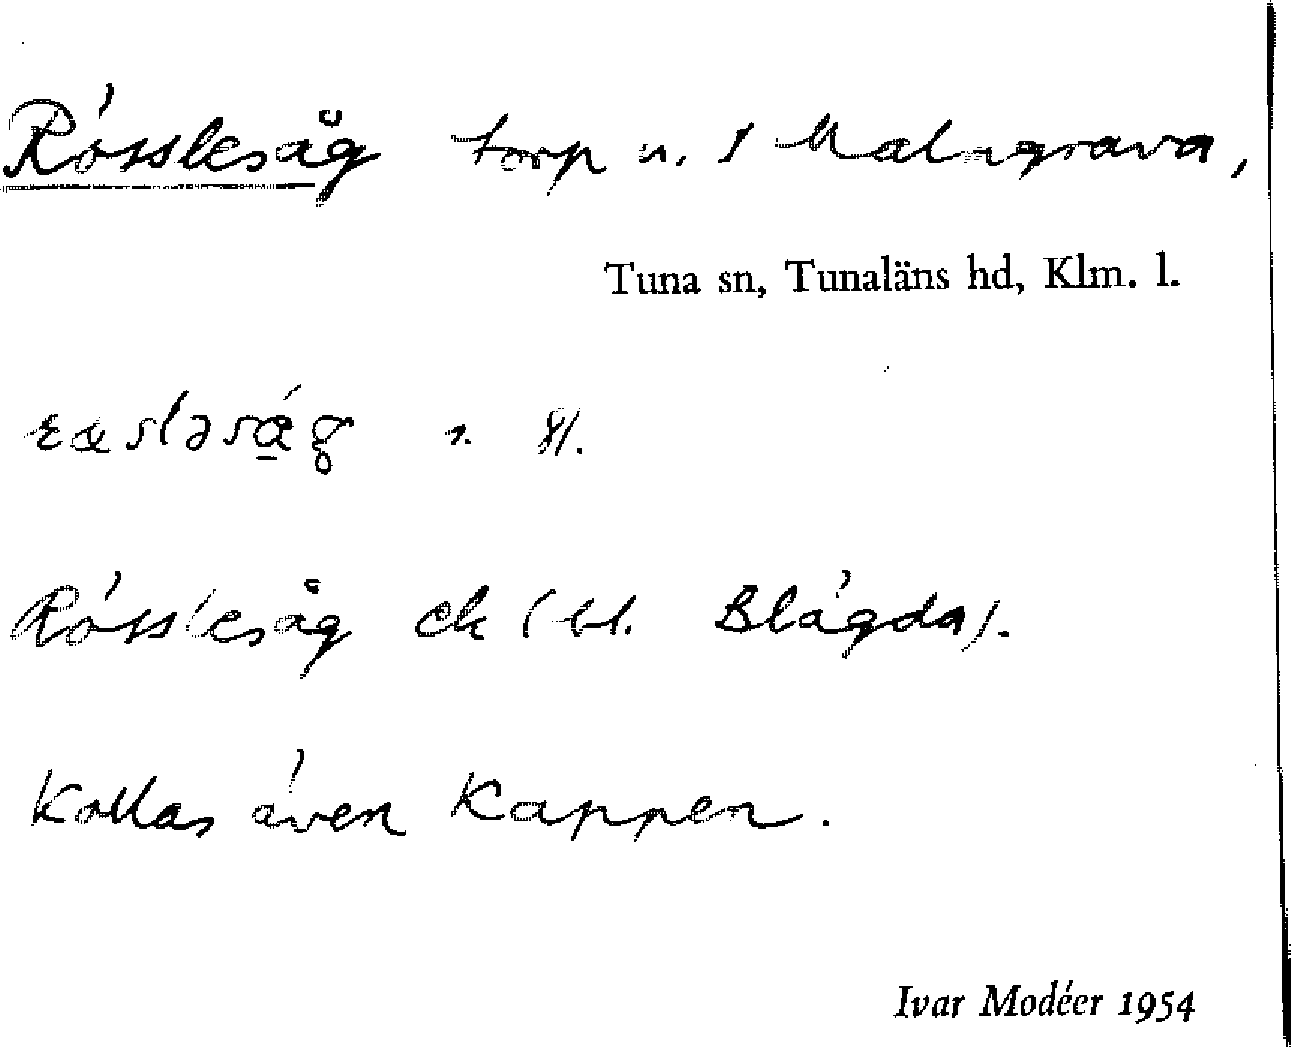 Rösslesåg torp u. 1 Malmgrava,
Tuna sn, Tunaläns hd, Klm. l.
Rösslesåg ek (bl. Blågda).
Kallas även Kappen.
Ivar Modéer 1954